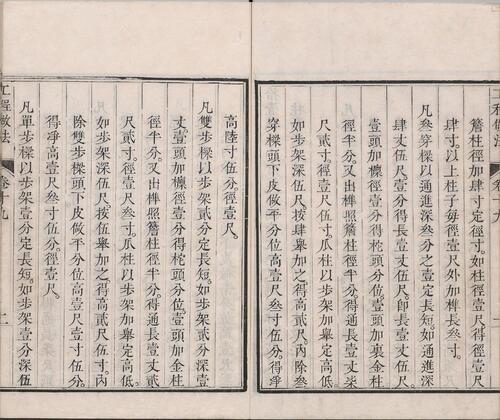 簷柱徑加肆寸定徑寸。如簷柱徑壹尺
肆寸。以上柱子每徑壹尺外加榫長叁寸。
凡叁穿樑以通進深叁分之壹定長短。如通進深
肆丈伍尺。壹分得長壹丈伍尺。卽長壹丈伍尺。
壹頭加檁徑壹分得柁頭分位。壹頭加裏金柱
徑半分。又出榫照簷柱徑半分。得通長壹丈柒
尺貳寸。徑壹尺伍寸。爪柱以步架加舉定高低。
如步架深伍尺。按肆舉加之得高貳尺。內除叁
穿樑頭下皮做平分位高壹尺叁寸伍分。得淨
高陸寸伍分。徑壹尺。
凡雙步樑以步架貳分定長短。如步架貳分深壹
丈。壹頭加檁徑壹分得柁頭分位。壹頭加金柱
徑半分。又出榫照簷柱徑半分。得通長壹丈貳
尺貳寸。徑壹尺叁寸。爪柱以步架加舉定高低。
如步架深伍尺。按伍舉加之得高貳尺伍寸。內
除雙步樑頭下皮做平分位高壹尺壹寸伍分。
得淨高壹尺叁寸伍分。徑壹尺。
凡單步樑以步架壹分定長短。如步架壹分深伍
工程做法 卷十九 二